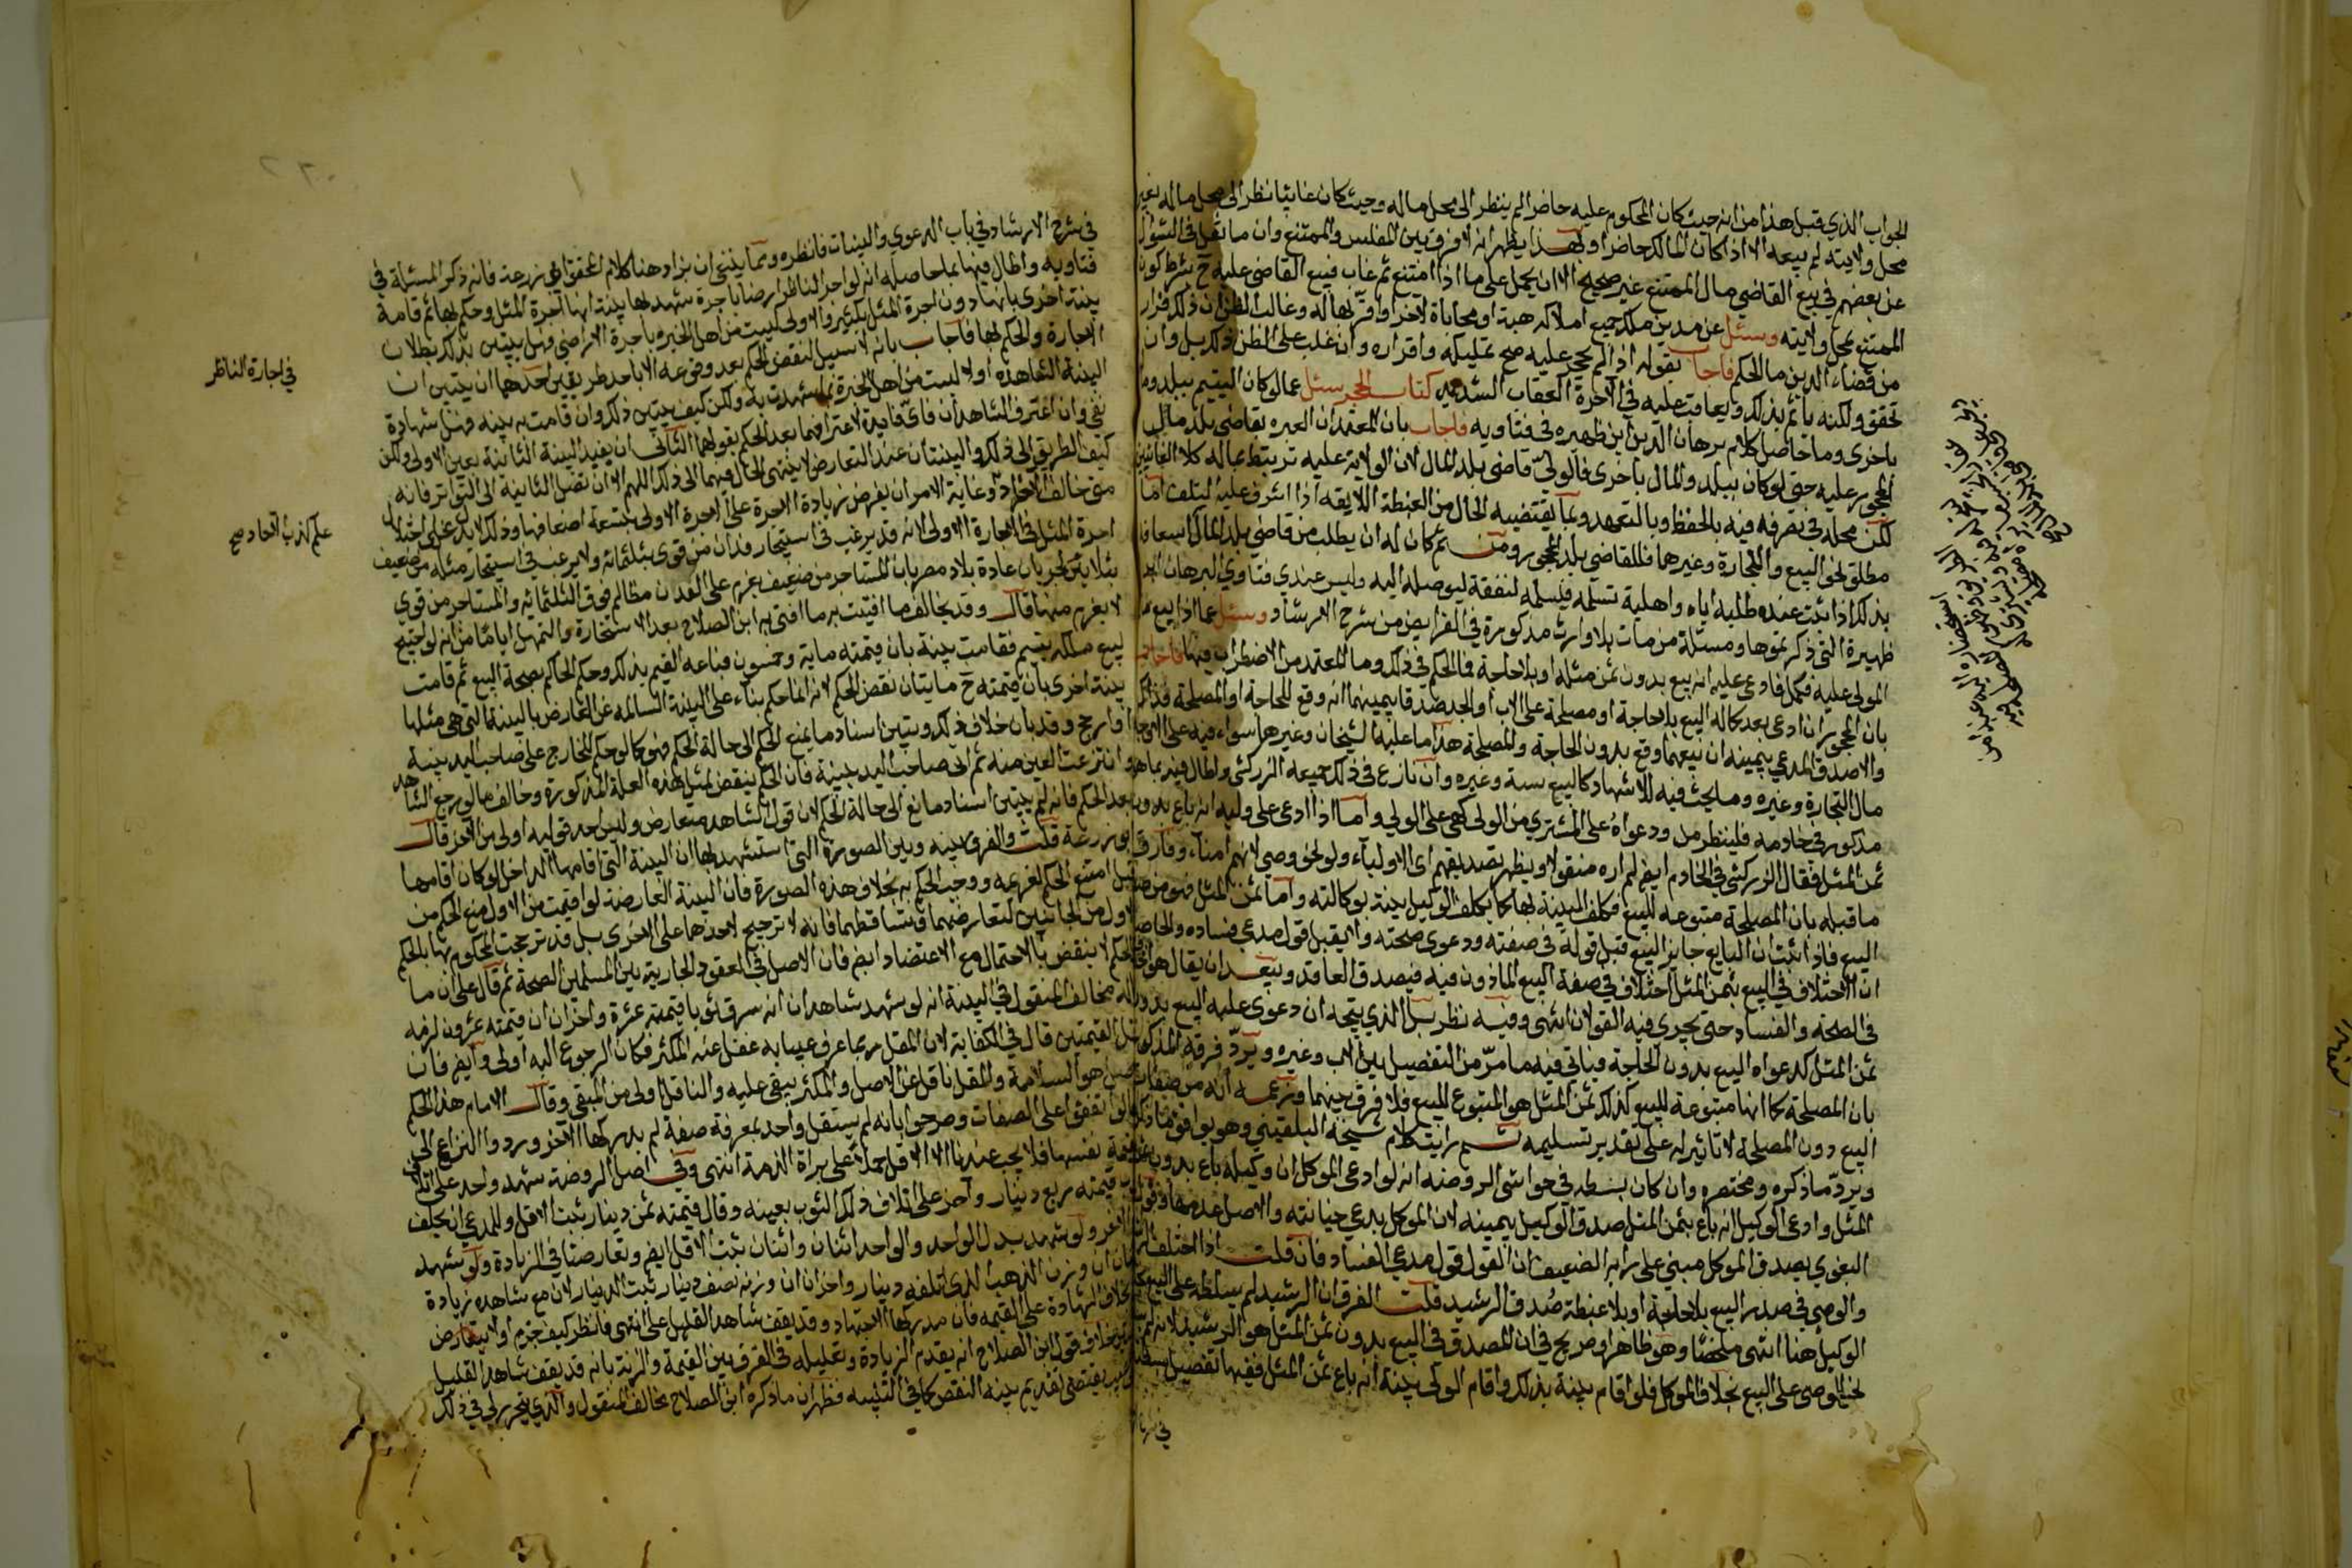 الجواب الذي قبل هذا من انه حيث كان المحكوم عليه حاضرا لم ينظر الى محل ماله وحيث كان غائبا نظر الى محل ماله بغير
محل ولايته لم يبعه الا اذا كان المالك حاضرا وبهذا يظهر انه لا فرق بين المفلس والممتنع وان ما نقل في السؤال
عن بعضهم في بيع القاضي مال الممتنع غير صحيح الا ان يحمل على ما اذا امتنع ثم غاب فبيع القاضي عليه ح بشرط كون
الممتنع بمحل ولايته وسئل عن مدين ملك جميع املاكه هبة او محاباة لاخر او اقر بها له وغالب الظن ان ذلك فرار
من قضاء الدين ما الحكم فاجاب بقوله اذا لم يحجر عليه صح تمليكه واقراره وان غلب على الظن ذلك بل وان
تحقق ولكنه يأثم بذلك ويعاقب عليه في الاخرة العقاب الشديد كتاب الحجر سئل عما لو كان اليتيم ببلد وماله
باخرى وما حاصل كلام برهان الدين ابن ظهيره في فتاويه فاجاب بان المعتمد ان العبره بقاضي بلد مال
المحجور عليه حتى لو كان ببلد والمال باخرى فالولي قاضي بلد المال لان الولاية عليه ترتبط بماله كمال الغائبين
لكن محله في تصرفه فيه بالحفظ وبالتعهد وبما يقتضيه الحال من الغبطة اللايقه اذا اشرف على التلف اما
مطلق نحو البيع والتجارة وغيرهما فللقاضي بلد المحجور ومن ثم كان له ان يطلب من قاضي بلد المال اسعافه
بذلك اذا ثبت عنده طلبه اياه واهلية تسلمه فيسلمه لنفقة ليوصله اليه وليس عندي فتاوي البرهان ابن
ظهيرة التي ذكرتموها ومسئلة من مات بلا وارث مذكورة في الفرايض من شرح الارشاد وسئل عما اذا بيع مال
المولى عليه فكمل فادعى عليه انه بيع بدون ثمن مثله او بلا حاجة فما الحكم في ذلك وما المعتمد من الاضطراب فيها فاجاب
بان المحجور ان ادعى بعد كماله البيع بلا حاجة او مصلحة على الاب او الجد صدقا بيمينهما انه وقع للحاجة او المصلحة فذاك
والا صدق المدعي بيمينه ان بيعهما وقع بدون الحاجة والمصلحة هذا ما عليه الشيخان وغيرهما سواء فيه على الاوجه
مال التجارة وغيره وما يجب فيه الاشهاد كالبيع نسئة وغيره وان نازع في ذلك جميعه الزركشي واطال فيه بما هو
مذكور في خادمه فلينظر منه ودعواه على المشتري من الولي كهي على الولي واما اذا ادعى على وليه انه باع بدون
ثمن المثل فقال الزركشي في الخادم ايضا لم اره منقولا ويظهر تصديقهم اي الاولياء ولو نحو وصي لانهم امناء وفارق
ما قبله بان المصلحة متبوعه للبيع فكلف البينة بها كما يكلف الوكيل بينة بوكالته واما ثمن المثل فهو من صفات
البيع فاذا ثبت ان البايع جايز البيع قبل قوله في صفته ودعوى صحته ولم يقبل قول مدعي فساده والحاصل
ان الاختلاف في البيع بثمن المثل اختلاف في صفة البيع الماذون فيه فيصدق العاقد ويبعد ان يقال هو اختلاف
في الصحة والفساد حتى يجري فيه القولان انتهى وفيه نظر بل الذي يتجه ان دعوى عليه البيع بدون
ثمن المثل كدعواه البيع بدون الحاجة فياتي فيه ما مرّ من التفصيل بين الاب وغيره ويردّ فرقه المذكور
بان المصلحة كما انها متبوعة للبيع كذلك ثمن المثل هو المتبوع للبيع فلا فرق بينهما وزعمه انه من صفات
البيع دون المصلحة لا تاثير له على تقدير تسليمه ثم رايت كلام شيخه البلقيني وهو يوافق ما ذكرته
ويردّ ما ذكره ومختصره وان كان بسطه في حواشي الروضه انه لو ادعى الموكل ان وكيله باع بدون ثمن
المثل وادعى الوكيل انه باع بثمن المثل صدق الوكيل بيمينه لان الموكل يدعي خيانته والاصل عدمها وقول
البغوي يصدق الموكل مبني على رايه الضعيف ان القول قول مدعي الفساد فان قلت اذا اختلف
والوصي في صدر البيع بلا حاجة او بلا غبطة صدق الرشيد قلت الفرق ان الرشيد لم يسلطه على البيع
الوكيل هنا انتهى ملخصا وهو ظاهر او صريح في ان المصدق في البيع بدون ثمن المثل هو الرشيد لانه لم
نحو الوصي على البيع بخلاف الموكل فلو اقام بينة بذلك واقام الولي بينة انه باع بثمن المثل ففيها تفصيل بسطته
في شرح
في شرح الارشاد في باب الدعوي والبينات فانظره ومما ينبغي ان يزاد هنا كلام المحقق ابي زرعة فانه ذكر المسئلة في
فتاويه واطال فيها بما حاصله انه لو اجر الناظر ارضا باجرة شهد لها بينة انها اجرة المثل وحكم بها ثم قامة
بينة اخرى بانها دون اجرة المثل بكثير والاولى ليست من اهل الخبره باجرة الاراضي فهل يتبين بذلك بطلان
الاجارة والحكم لها فاجاب بانه لا سبيل لنقض الحكم بعد وقوعه الا باحد طريقين احدهما ان يتبين ان
البينة الشاهدة اولا ليست من اهل الخبرة بما شهدت به ولكن كيف يتبين ذلك وان قامت به بينه فهل شهادة
نفي وان اعترف الشاهدان فاي فايدة لاعترافهما بعد الحكم بقولهما الثاني ان يفيد البينة الثانية يعين الاولى ولكن
كيف الطريق الى ذلك والبينتان عند التعارض لا ينتهي الحال فيهما الى ذلك اللهم الا ان تصل الثانية الى التواتر فانه
متى خالف الاحاد وغاية الامر ان يفرض زيادة الاجرة على الاجرة الاولى بتسعة اضعافها وذلك لا يدل على اختلال
اجرة المثل في الاجارة الاولى لانه قد يرغب في استيجار فدان من قوي بثلثمائه ولا يرغب في استيجار مثله من ضعيف
بثلاثين لجريان عادة بلاد مصر بان المستاجر من ضعيف يغرم على الفدان مظالم فوق الثلثمائه والمستاجر من قوي
لا يغرم منها قال وقد يخالف ما افتيت به ما افتى به ابن الصلاح بعد الاستخارة والتمهل اياما من انه لو احتيج
لبيع ملك يتيم فقامت بينة بان قيمته ماية وخمسون فباعه القيم بذلك وحكم الحاكم بصحة البيع ثم قامت
بينة اخرى بان قيمته ح مايتان نقض الحكم لانه انما حكم بناء على البينة السالمه عن المعارض بالبينة التي هي مثلها
او ارجح وقد بان خلاف ذلك وتبين اسناد ما يمنع الحكم الى حالة الحكم فهو كما لو حكم للخارج على صاحب اليد ببينة
وانتزعت العين منه ثم اتى صاحب اليد ببينة فان الحكم ينقض لمثل هذه العلة المذكورة وخالف ما لو رجع الشاهد
بعد الحكم فانه لم يتبين اسناد مانع الى حالة الحكم لان قول الشاهد متعارض وليس احد قوليه اولى من الاخر قال
ابو زرعة قلت والفرق بينه وبين الصورة التي استشهد بها ان البينة التي اقامها الداخل لو كان اقامها
قبل امتنع الحكم لغريمه ووجب الحكم به بخلاف هذه الصورة فان البينة المعارضة لو اقيمت من الاول منع الحكم من
الاول من الجانبين لتعارضهما وتساقطهما فانه لا ترجيح لاحدهما على الاخرى بل قد ترجحت المحكوم بها بالحكم
والحكم لا ينقض بالاحتمال مع الاعتضاد ايضا فان الاصل في العقود الجارية بين المسلمين الصحة ثم قال على ان ما
قاله مخالف المنقول في البينة انه لو شهد شاهدان انه سرق ثوبا قيمته عشرة واخران ان قيمته عشرون لزمه
اقل القيمتين قال في الكفاية لان المقل ربما عرف عيبا به غفل عنه المكثر فكان الرجوع اليه اولى وايضا فان
الاصل هو السلامة والمقل ناقل عن الاصل والمكثر يبقى عليه والناقل اولى من المبقي وقال الامام هذا الحكم
اتفقوا على الصفات وصرحوا بانه لم يستقل واحد بمعرفة صفة لم يدركها الاخر وردوا النزاع الى
القيمة نفسها فلا يجب عندنا الا الاقل حملا على براة الذمة انتهى وفي اصل الروضة شهد واحد على اتلاف
ثوب قيمته ربع دينار واخر على اتلاف ذلك الثوب بعينه وقال قيمته ثمن دينار ثبت الاقل وللمدعي ان يحلف
مع الاخر ولو شهد بدل الواحد والواحد اثنان واثنان ثبت الاقل ايضا وتعارضتا في الزيادة ولو شهد
اثنان ان وزن الذهب الذي اتلفه دينار واخران ان وزنه نصف دينار ثبت الدينار لان مع شاهده زيادة
بخلاف الشهادة على القيمه فان مدركها الاجتهاد وقد يقف شاهد القليل على انتهى فانظر كيف جزم اولا بتعارض
خلاف قول ابن الصلاح انه يقدم الزيادة وتعليله في الفرق بين القيمة والزنه بانه قد يقف شاهد القليل
يقتضي تقديم بينة النقص كما في التنبيه فظهر ان ما ذكره ابن الصلاح مخالف المنقول والذي يتحرر لي في ذلك
في اجارة الناظر
علم كذب الاحاد صح